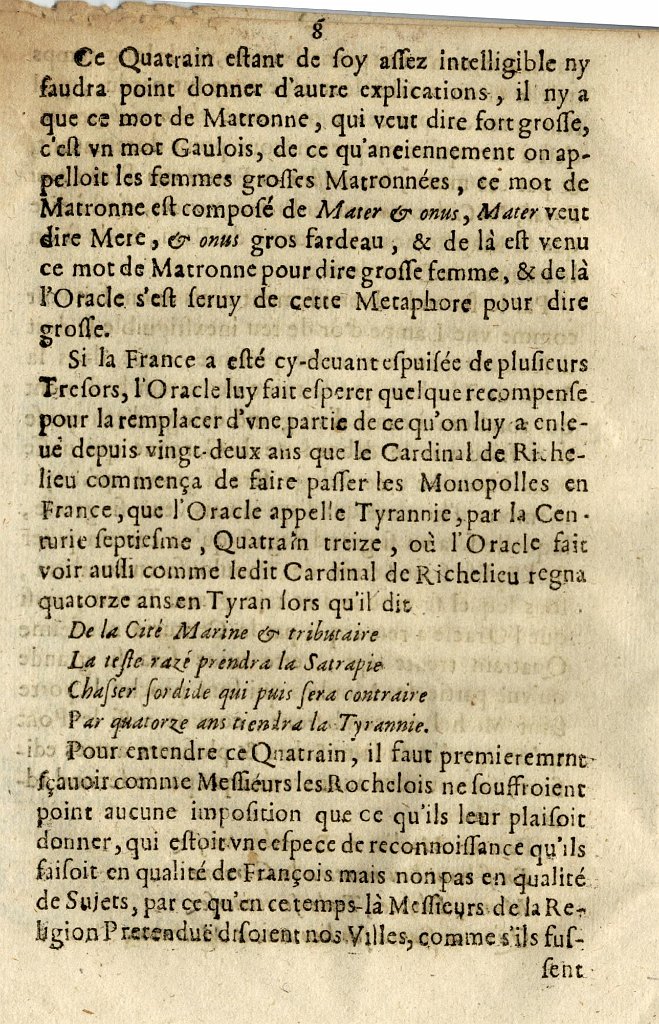 8
Ce Quatrain eſtant de ſoy aſſez intelligible ny
faudra point donner d'autre explications, il ny a
que ce mot de Matronne, qui veut dire fort groſſe,
c'eſt vn mot Gaulois, de ce qu'anciennement on ap-
pelloit les femmes groſſes Matronnées, ce mot de
Matronne eſt compoſé de Mater & onus, Mater veut
dire Mere, & onus gros fardeau, & de là eſt venu
ce mot de Matronne pour dire groſſe femme, & de là
l'Oracle s'eſt ſeruy de cette Metaphore pour dire
groſſe.
Si la France a eſté cy-deuant eſpuiſée de pluſieurs
Treſors, l'Oracle luy fait eſperer quelque recompenſe
pour la remplacer d'vne partie de ce qu'on luy a enle-
ué depuis vingt-deux ans que le Cardinal de Riche-
lieu commença de faire paſſer les Monopolles en
France, que l'Oracle appelle Tyrannie, par la Cen-
turie ſeptieſme, Quatrain treize, où l'Oracle fait
voir auſſi comme ledit Cardinal de Richelieu regna
quatorze ans en Tyran lors qu'il dit
De la Cité Marine & tributaire
La teſte razé prendra la Satrapie
Chaſſer ſordide qui puis ſera contraire
Par quatorze ans tiendra la Tyrannie.
Pour entendre ce Quatrain, il faut premierement
ſçauoir comme Meſſiéurs les Rochelois ne ſouffroient
point aucune impoſition que ce qu'ils leur plaiſoit
donner, qui eſtoit vne eſpece de reconnoiſſance qu'ils
faiſoit en qualité de François mais non pas en qualité
de Sujets, par ce qu'en ce temps-là Meſſieurs de la Re-
ligion Pretenduë diſoient nos Villes, comme s'ils fuſ-
ſent